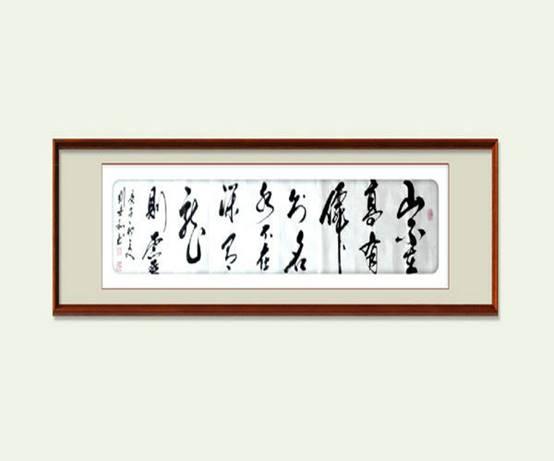 山不在
高有
僊
则名
水不在
深有
龍
則靈